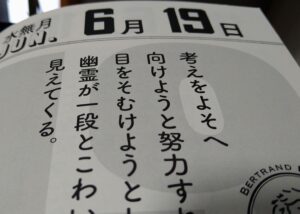 水無月
JUN.
6月19日
考えをよそへ
向けようと努力すれ
目をそむけようと
幽霊が一段とこわい
見えてくる。
BERTRAND